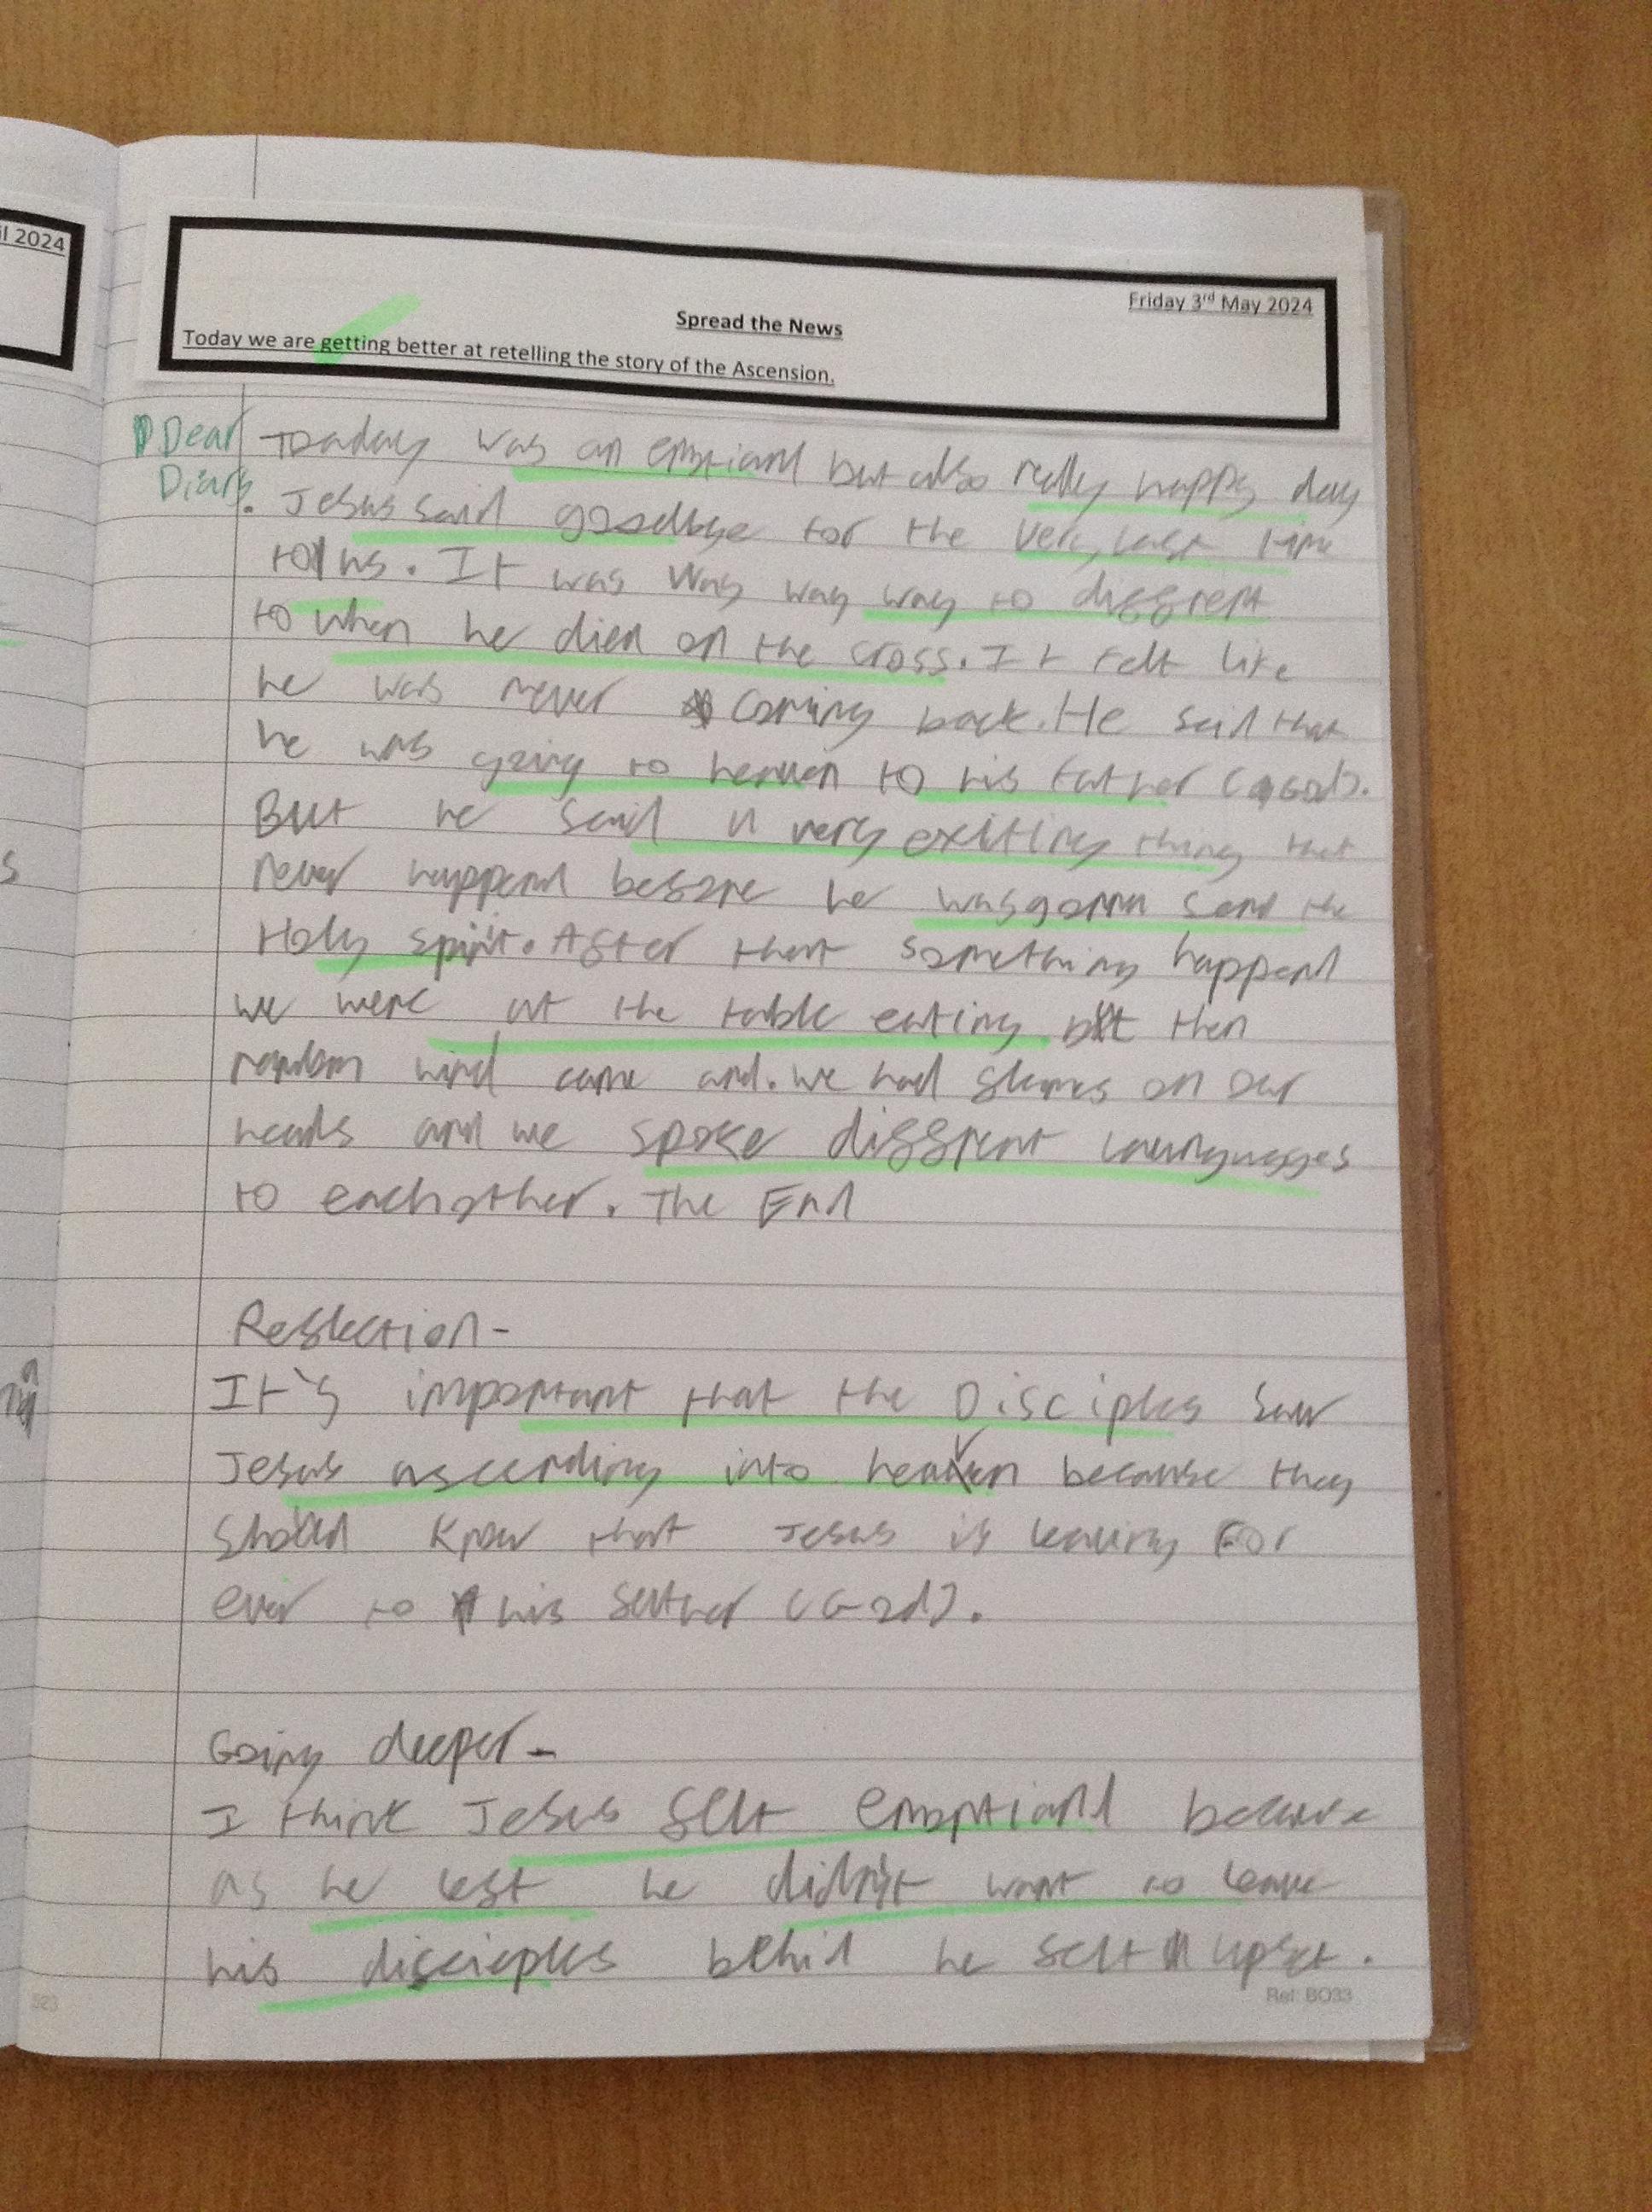 il 2024
Friday 3rd May 2024
Spread the News
Today we are getting better at retelling the story of the Ascension.
Dear
Diary.
Toaday was an emptianl but also really happy day
Jesus said goodbye for the very last time
to us. It was way way way to diffrent
to when he died on the cross. It felt like
he was never coming back. He said that
he was going to heaven to his father (God).
But he said a very exiting thing that
never happend before he was gonna send the
Holy spirit. After that something happend
we were at the table eating but then
random wind came and. we had flames on our
heads and we spoke diffrent launguages
to eachother. The End
Reflection-
It's important that the Disciples saw
Jesus ascending into heaven because they
should know that Jesus is leaving For
ever to his father (God).
Going deeper-
I think Jesus felt emoptianl because
as he left he didn't want to leave
his discieples behid he felt upset.
Ref: BO33